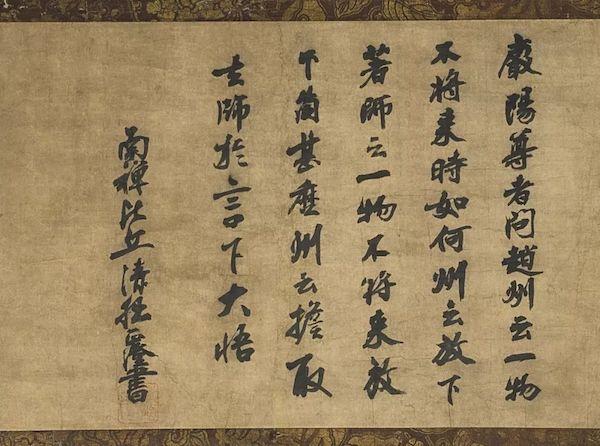 嚴陽尊者問趙州云一物
不將來時如何州云放下
著師云一物不將來放
下箇甚麼州云擔取
去師於言下大悟
南禪比丘清拙正澄書